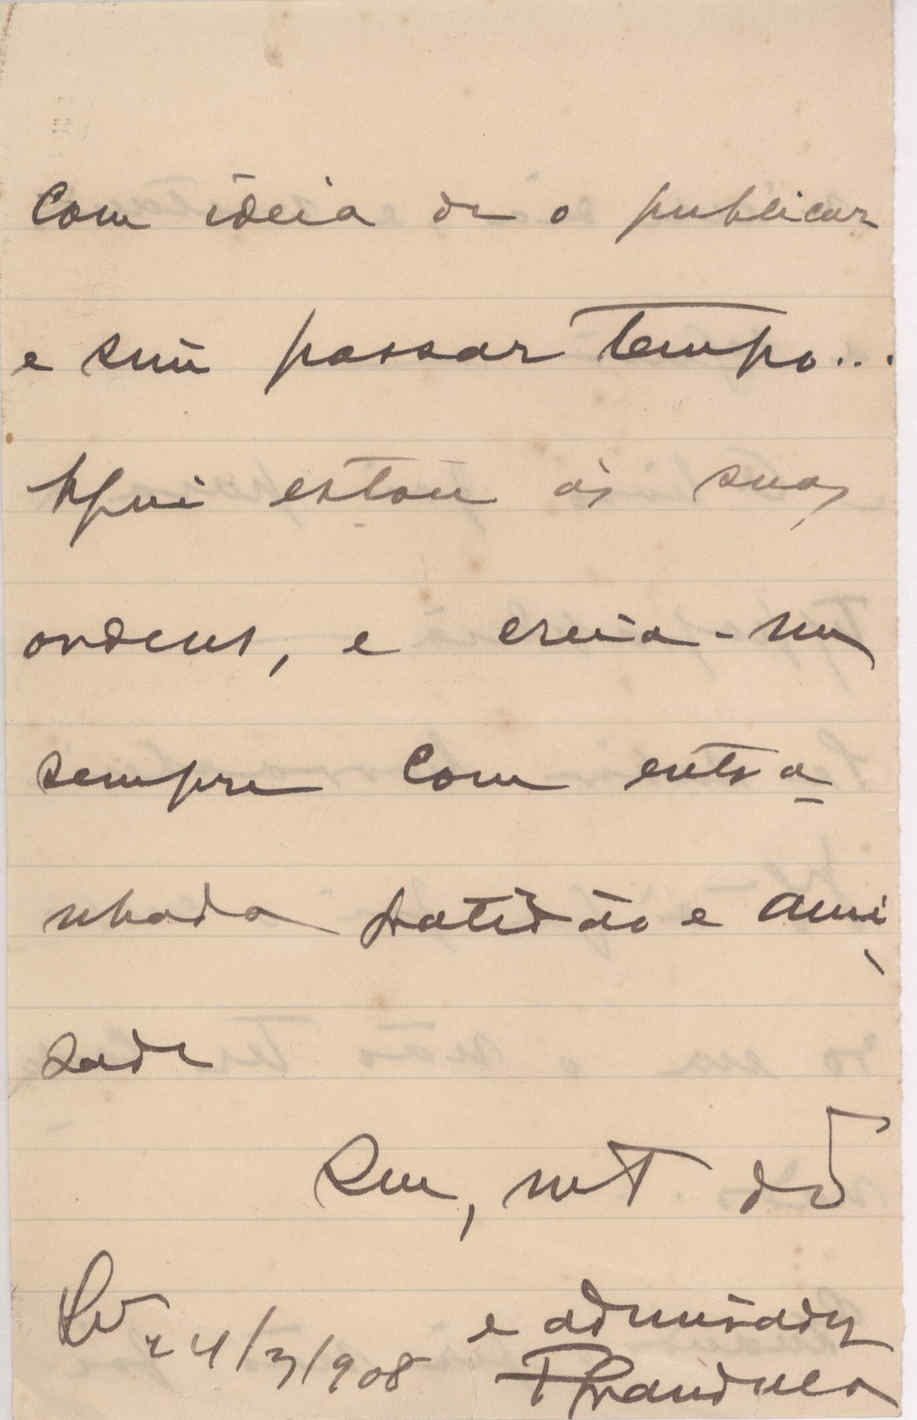 Com ideia de o publicar
e sim passar tempo...
Aqui estou ás suas
ordens, e creia-me
sempre com entra-
nhada gratidão e ami-
zade
Seu, mt dõ
e admirador
24/3/908